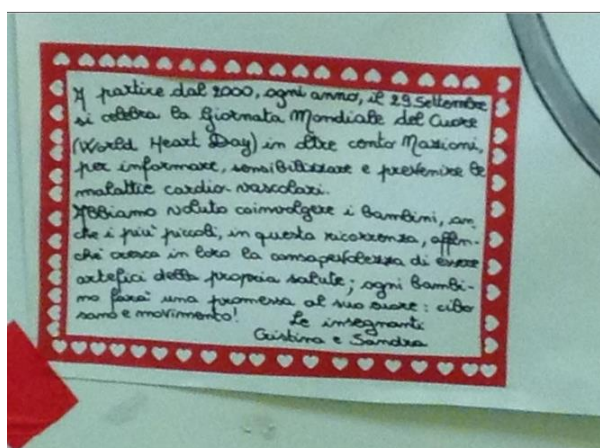 A partire dal 2000, ogni anno, il 29 Settembre
si celebra la Giornata Mondiale del Cuore
(World Heart Day) in oltre cento Nazioni,
per informare, sensibilizzare e prevenire le
malattie cardio-vascolari.
Abbiamo voluto coinvolgere i bambini, an-
che i piu' piccoli, in questa ricorrenza, affin-
chè cresca in loro la consapevolezza di essere
artefici della propria salute; ogni bambi-
no farà una promessa al suo cuore: cibo
sano e movimento! Le insegnanti
Cristina e Sandra